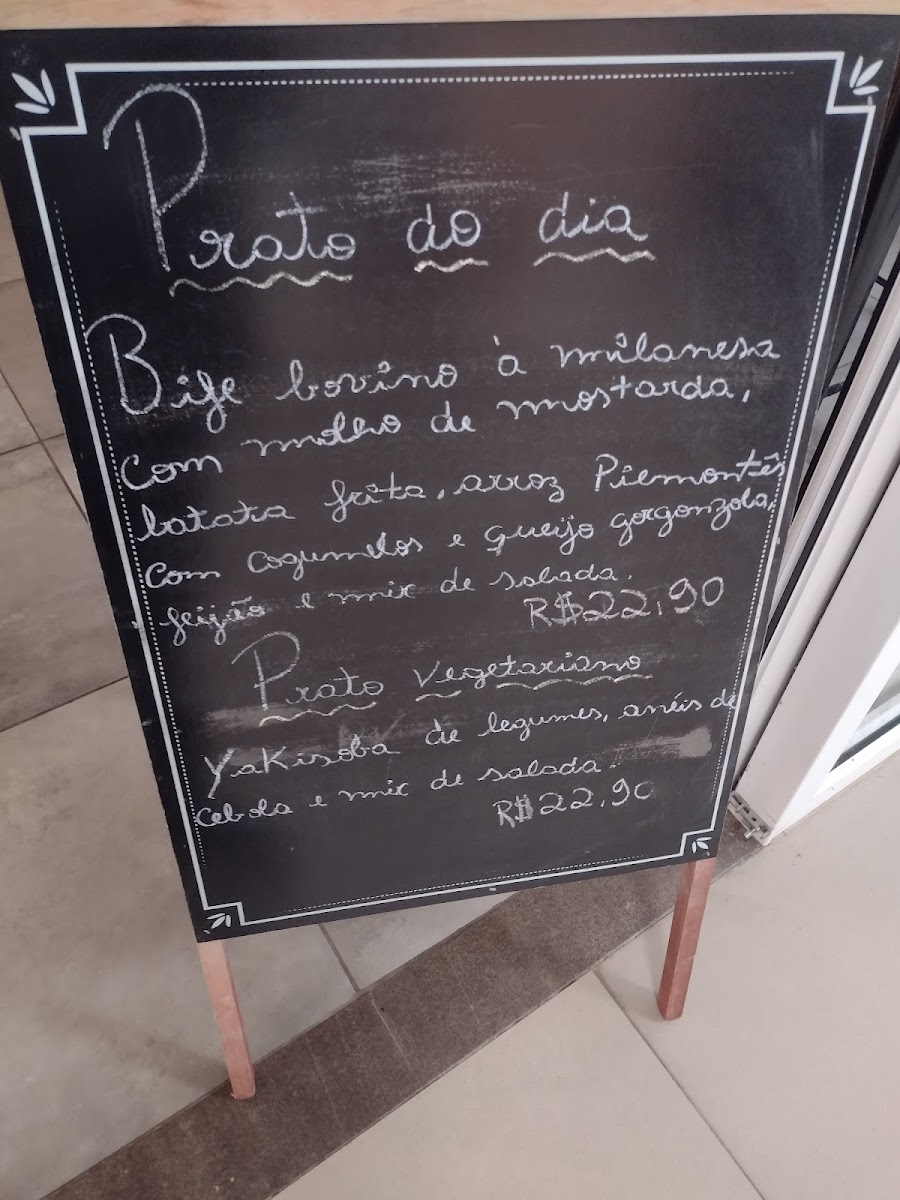 Prato do dia
Bife bovino à milanesa
com molho de mostarda,
batata frita, arroz Piemontês
com cogumelos e queijo gorgonzola,
feijão e mix de salada.
R$22,90
Prato Vegetariano
Yakisoba de legumes, anéis de
cebola e mix de salada.
R$22,90